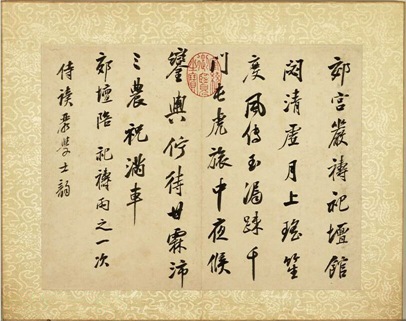 郊宮嚴禱祀壇館
閟清虛月上瑤笙
度風傳玉漏疎千
門屯虎旅中夜候
鑾輿佇待甘霖沛
三農祝滿車
郊壇陪祀禱雨之一次
侍讀嚴學士韵